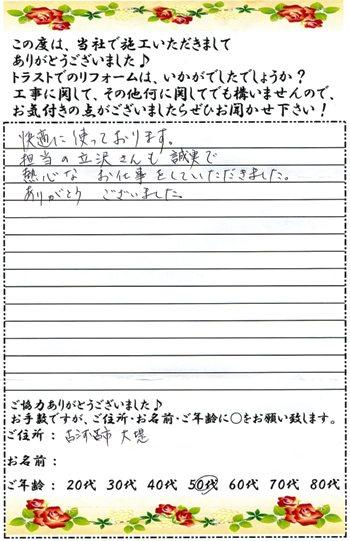 この度は、当社で施工いただきまして
ありがとうございました♪
トラストでのリフォームは、いかがでしたでしょうか？
工事に関して、その他何に関してでも構いませんので、
お気付きの点がございましたらぜひお聞かせ下さい！
快適に使っております。
担当の立沢さんも誠実で
熱心な お仕事をしていただきました。
ありがとう ございました。
ご協力ありがとうございました♪
お手数ですが、ご住所・お名前・ご年齢に○をお願い致します。
ご住所： 古河市 大堤
お名前：
ご年齢： 20代 30代 40代 50代 60代 70代 80代